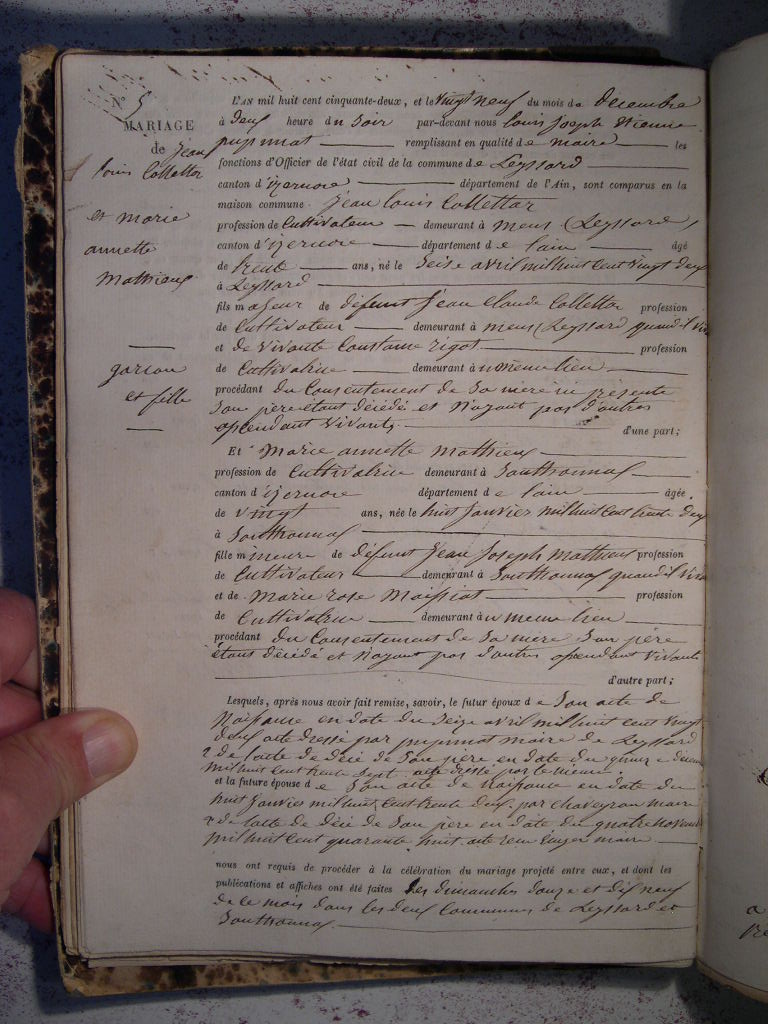 N° 5
MARIAGE
de Jean
louis Collettaz
et marie
annette
mathieux
garson
et fille
L'AN mil huit cent cinquante-deux, et le vingt neuf du mois de decembre
à deux heure du soir par-devant nous louis joseph Etienne
puginnat remplissant en qualité de maire les
fonctions d'Officier de l'état civil de la commune de Leyssard
canton d'izernore département de l'Ain, sont comparus en la
maison commune jean louis Collettaz
profession de Cultivateur demeurant à mens (Leyssard)
canton d'izernore département de lain âgé
de trente ans, né le Seise avril mil huit Cent vingt deux
à Leyssard
fils majeur de défunt jean Claude Collettaz profession
de Cultivateur demeurant à mens (Leyssard quand il vivait
et de vivante Constance rigot profession
de Cultivatrice demeurant à u meme lien
procédant du Consentement de Sa mère ici présente
Son père étant décédé et N'ayant pas d'autres
asendant vivants d'une part;
Et Marie annette mathieux
profession de Cultivatrice demeurant à Sonthonnax
canton d'izernore département de lain âgée
de vingt ans, née le huit janvier mil huit Cent trente deux
à Sonthonnax
fille mineure de défunt jean joseph mathieux profession
de Cultivateur demeurant à Sonthonnax quand il vivait
et de Marie rose Maissiat profession
de Cultivatrice demeurant à u meme lien
procédant du Consentement de Sa mère Son père
étant décédé et N'ayant pas d'autres asendant vivants
d'autre part;
Lesquels, après nous avoir fait remise, savoir, le futur époux de Son acte de
Naissance en date du Seize avril mil huit cent vingt
deux acte dressé par puginnat maire de Leyssard
2 de lacte de décé de Son père en date du
mil huit Cent trente Sept acte dressé par le meme
et la future épouse de Son acte de Naissance en date du
huit janvier mil huit Cent trente deux par chaveyron maire
2 de lacte de décé de Son père en date du quatre Novembre
mil huit Cent quarante huit acte maire
nous ont requis de procéder à la célébration du mariage projeté entre eux, et dont les
publications et affiches ont été faites les dimanches douze et dix neuf
de ce mois dans les deux Communes de Leyssard et
Sonthonnax